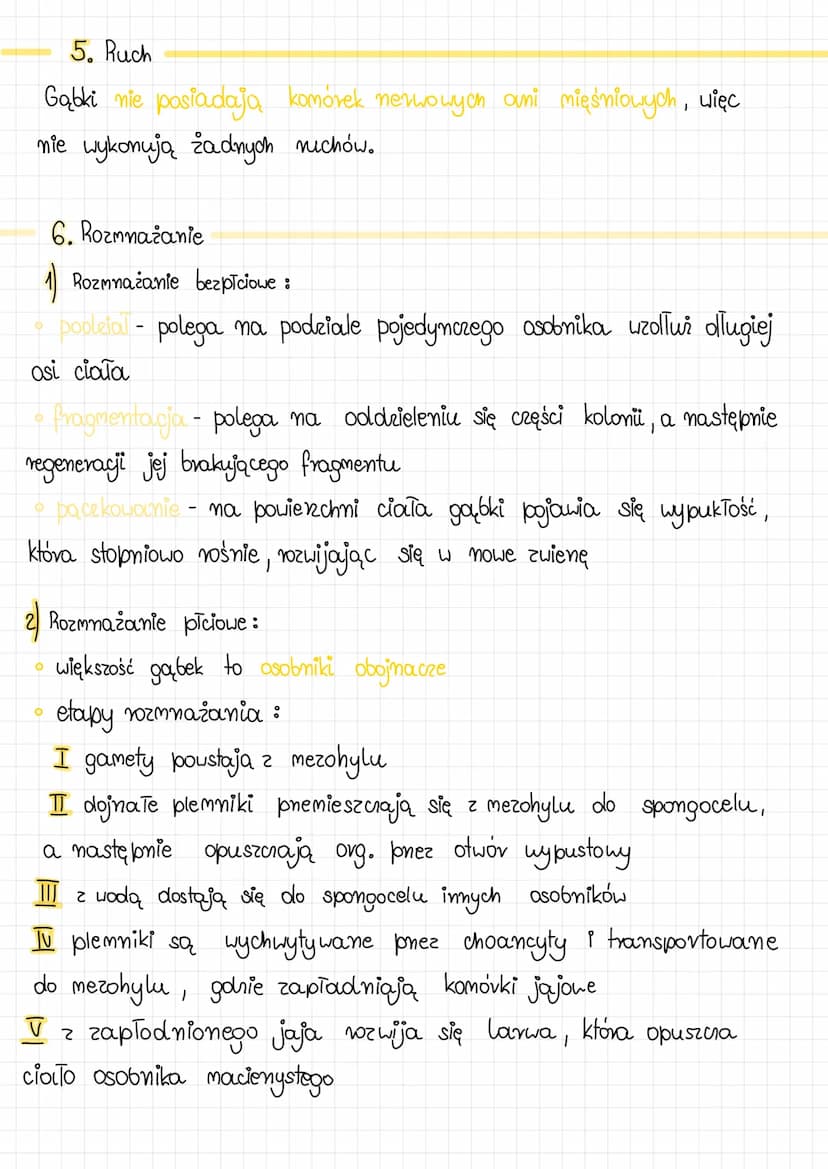 5. Ruch
Gąbki nie posiadają komórek nerwowych ani mięśniowych, więc
nie wykonują żadnych ruchów.
6. Rozmnażanie
1) Rozmnażanie bezpłciowe:
• podział - polega na podziale pojedynczego osobnika wzdłuż długiej
osi ciała
• fragmentacja - polega na oddzieleniu się części kolonii, a następnie
regeneracji jej brakującego fragmentu
• pączkowanie - na powierzchni ciała gąbki pojawia się wypukłość,
która stopniowo rośnie, rozwijając się w nowe zwierzę
2) Rozmnażanie płciowe:
• większość gąbek to osobniki obojnacze
• etapy rozmnażania:
I gamety powstają z mezohylu
II dojrzałe plemniki przemieszczają się z mezohylu do spongocelu,
a następnie opuszczają org. przez otwór wypustowy
III z wodą dostają się do spongocelu innych osobników
IV plemniki są wychwytywane przez choancyty i transportowane
do mezohylu, gdzie zapładniają komórki jajowe
V z zapłodnionego jaja rozwija się larwa, która opuszcza
ciało osobnika macierzystego